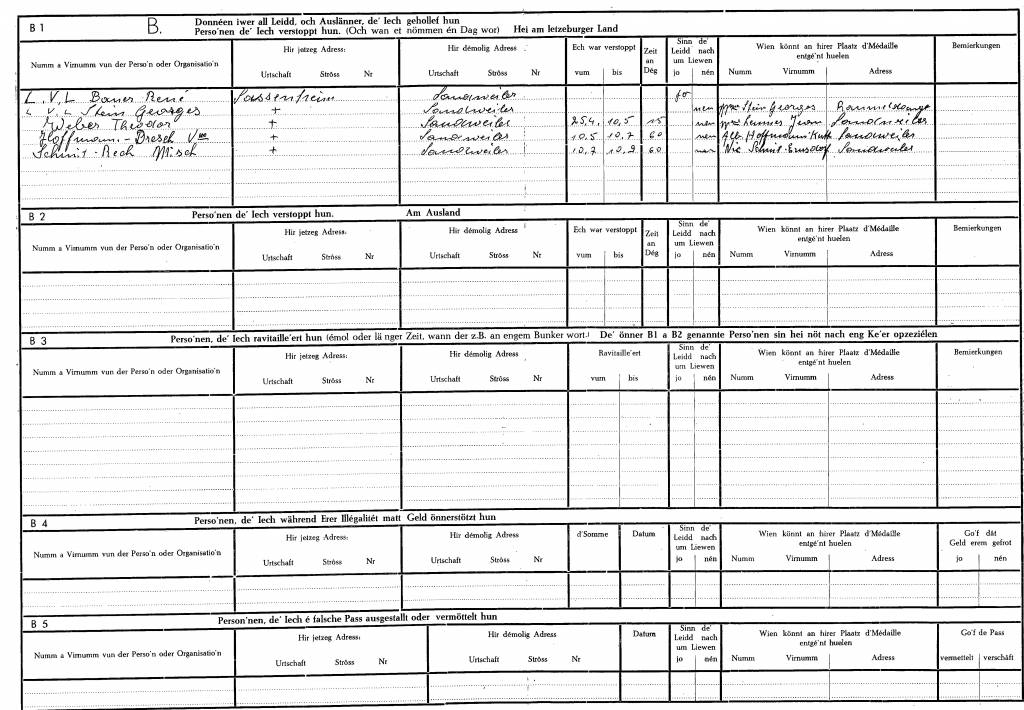 B 1 B. Donnéen iwer all Leidd, och Auslänner, de' Iech gehollef hun
Perso'nen de' Iech verstoppt hun. (Och wan et nömmen én Dag wor) Hei am letzeburger Land
Numm a Virnumm vun der Perso'n oder Organisatio'n Hir jetzeg Adress: Hir démolig Adress Ech war verstoppt Zeit an Dég Sinn de' Leidd nach um Liewen Wien könnt an hirer Plaatz d'Médaille entgé'nt huelen Bemierkungen
Urtschaft Ströss Nr Urtschaft Ströss Nr vum bis jo nén Numm Virnumm Adress
L.V.L Bauer René Sassenheim Sandweiler jo
L.V.L Stein Georges + Sandweiler nen Stein Georges
Weber Theodor + Sandweiler 25.4. 10,5 15 nen Sandweiler
Hoffmann-Brosch + Sandweiler 10.5 10,7 60 nen Alb. Hoffmann Sandweiler
Schmit-Rech Misch + Sandweiler 10,7 10,9 60 nen Nic Schmit Sandweiler
B 2 Perso'nen de' Iech verstoppt hun. Am Ausland
Numm a Virnumm vun der Perso'n oder Organisatio'n Hir jetzeg Adress: Hir démolig Adress Ech war verstoppt Zeit an Dég Sinn de' Leidd nach um Liewen Wien könnt an hirer Plaatz d'Médaille entgé'nt huelen Bemierkungen
Urtschaft Ströss Nr Urtschaft Ströss Nr vum bis jo nén Numm Virnumm Adress
B 3 Perso'nen, de' Iech ravitaille'ert hun (émol oder länger Zeit, wann der z.B. an engem Bunker wort.) De' önner B1 a B2 genannte Perso'nen sin hei nöt nach eng Ke'er opzeziélen
Numm a Virnumm vun der Perso'n oder Organisatio'n Hir jetzeg Adress: Hir démolig Adress Ravitaille'ert Sinn de' Leidd nach um Liewen Wien könnt an hirer Plaatz d'Médaille entgé'nt huelen Bemierkungen
Urtschaft Ströss Nr Urtschaft Ströss Nr vum bis jo nén Numm Virnumm Adress
B 4 Perso'nen, de' Iech während Erer Illégalitét matt Geld önnerstötzt hun
Numm a Virnumm vun der Perso'n oder Organisatio'n Hir jetzeg Adress: Hir démolig Adress d'Somme Datum Sinn de' Leidd nach um Liewen Wien könnt an hirer Plaatz d'Médaille entgé'nt huelen Go'f dât Geld erem gefrot
Urtschaft Ströss Nr Urtschaft Ströss Nr jo nén Numm Virnumm Adress jo nén
B 5 Person'nen, de' Iech é falsche Pass ausgestallt oder vermöttelt hun
Numm a Virnumm vun der Perso'n oder Organisatio'n Hir jetzeg Adress: Hir démolig Adress Datum Sinn de' Leidd nach um Liewen Wien könnt an hirer Plaatz d'Médaille entgé'nt huelen Go'f de Pass
Urtschaft Ströss Nr Urtschaft Ströss Nr jo nén Numm Virnumm Adress vermettelt verschäft